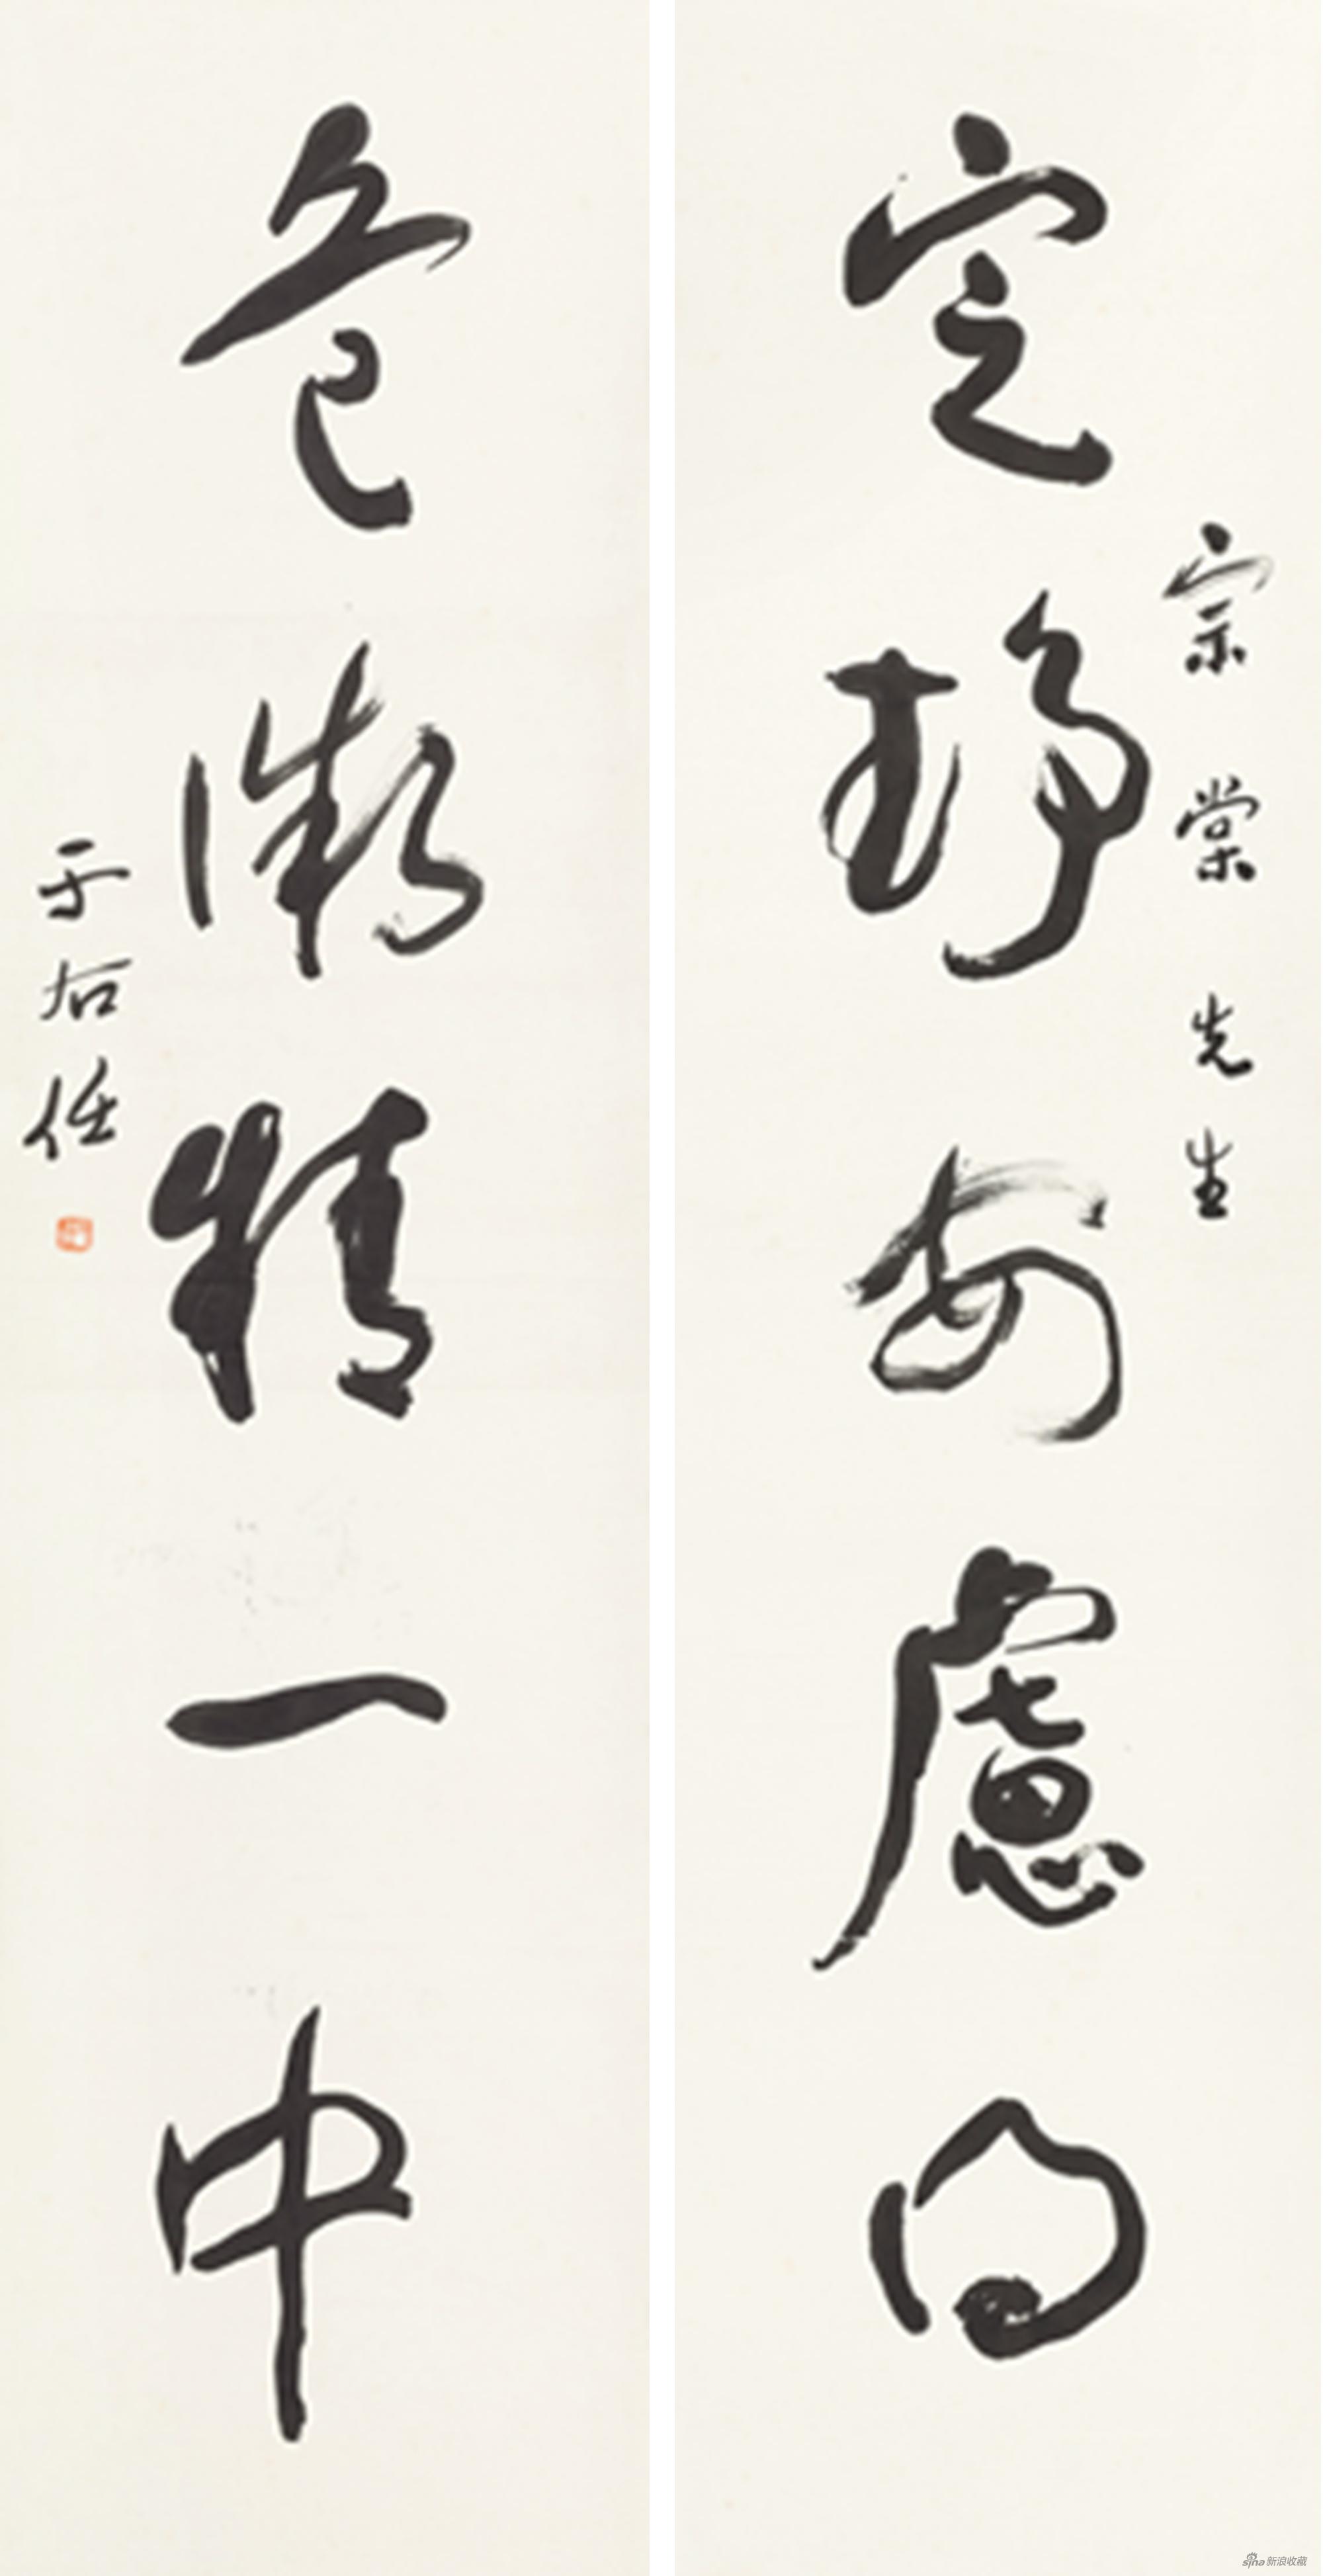 宗棠先生
定静安慮向
危微精一中
于右任
sina 新浪收藏